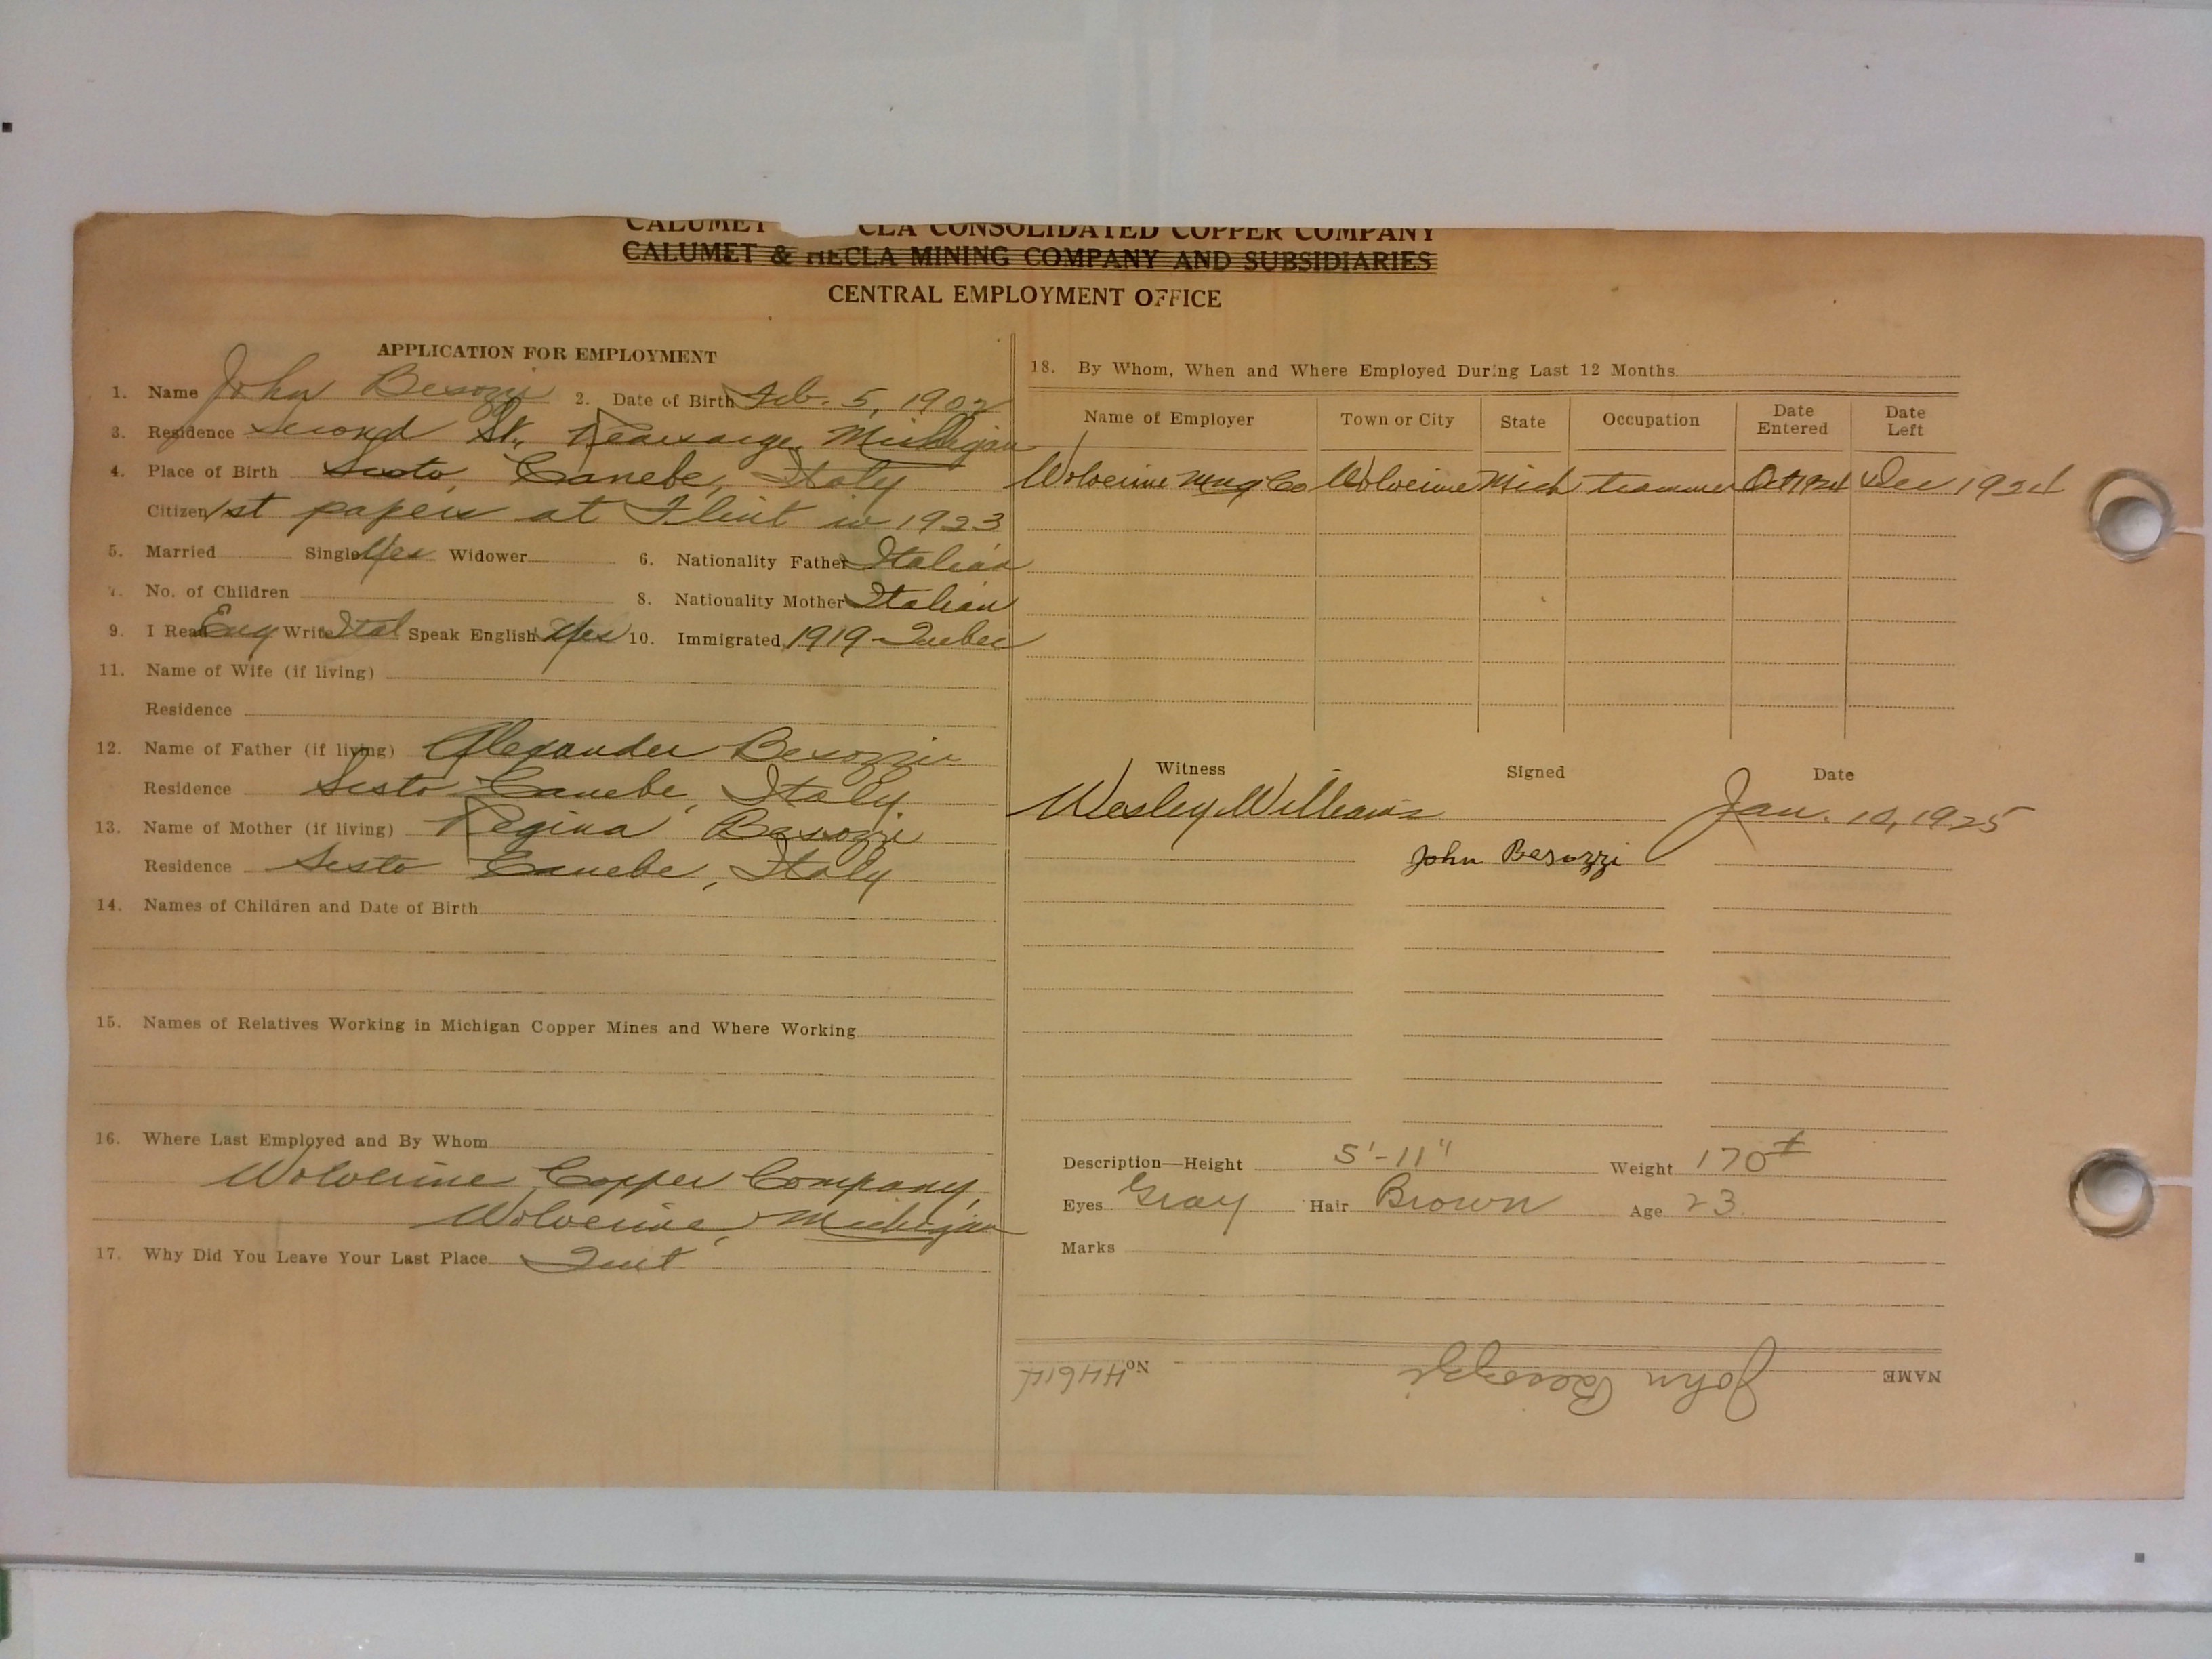 CALUMET CLA CONSOLIDATED COPPER COMPANY
CALUMET & HECLA MINING COMPANY AND SUBSIDIARIES
CENTRAL EMPLOYMENT OFFICE
APPLICATION FOR EMPLOYMENT
1. Name John Besozzi 2. Date of Birth Feb. 5, 1902
3. Residence Second St., Kearsarge, Michigan
4. Place of Birth Sesto, Canebe, Italy
Citizen 1st papers at Flint in 1923
5. Married Single Yes Widower 6. Nationality Father Italian
7. No. of Children 8. Nationality Mother Italian
9. I Read Eng Write Ital Speak English Yes 10. Immigrated 1919 - Quebec
11. Name of Wife (if living)
Residence
12. Name of Father (if living) Alexander Besozzi
Residence Sesto Canebe, Italy
13. Name of Mother (if living) Regina Besozzi
Residence Sesto Canebe, Italy
14. Names of Children and Date of Birth
15. Names of Relatives Working in Michigan Copper Mines and Where Working
16. Where Last Employed and By Whom
Wolverine Copper Company,
Wolverine, Michigan
17. Why Did You Leave Your Last Place Quit
18. By Whom, When and Where Employed During Last 12 Months
Name of Employer Town or City State Occupation Date Entered Date Left
Wolverine Mng Co Wolverine Mich trammer Oct 1924 Dec 1924
Witness Signed Date
Wesley Williams Jan. 10, 1925
John Besozzi
Description—Height 5'-11" Weight 170±
Eyes Gray Hair Brown Age 23
Marks
NAME John Besozzi No. 44614